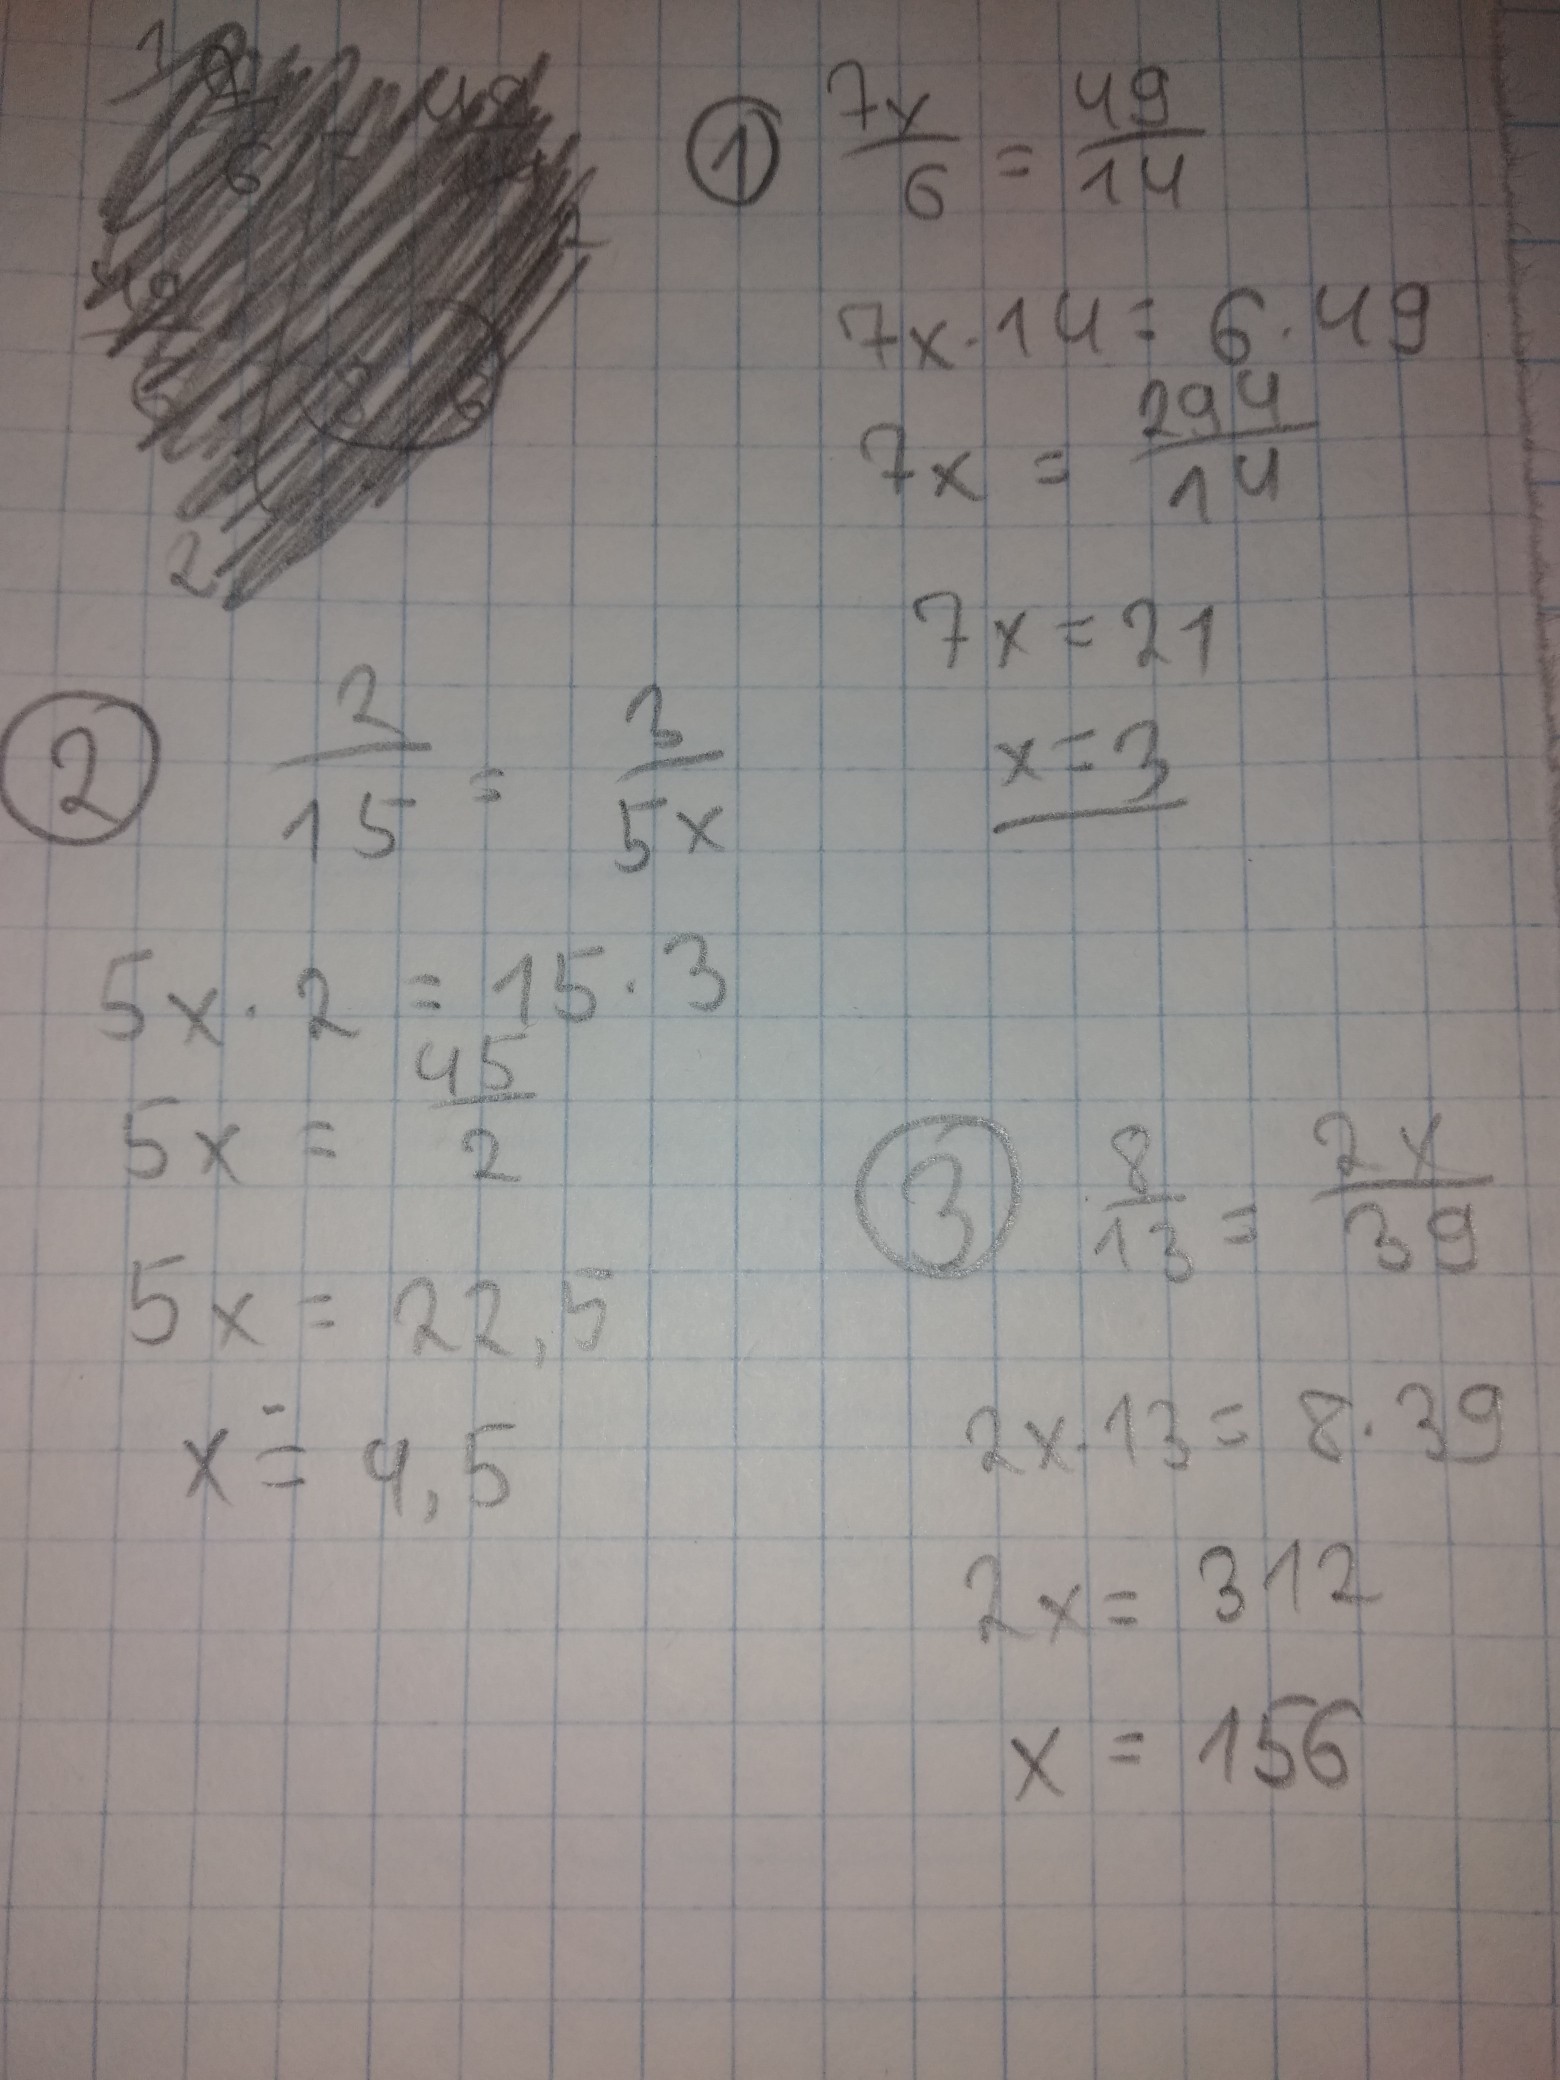 ① 7x/6 = 49/14
7x·14 = 6·49
7x = 294/14
7x = 21
x = 3
② 2/15 = 3/5x
5x·2 = 15·3
5x = 45/2
5x = 22,5
x = 4,5
③ 8/13 = 2x/39
2x·13 = 8·39
2x = 312
x = 156